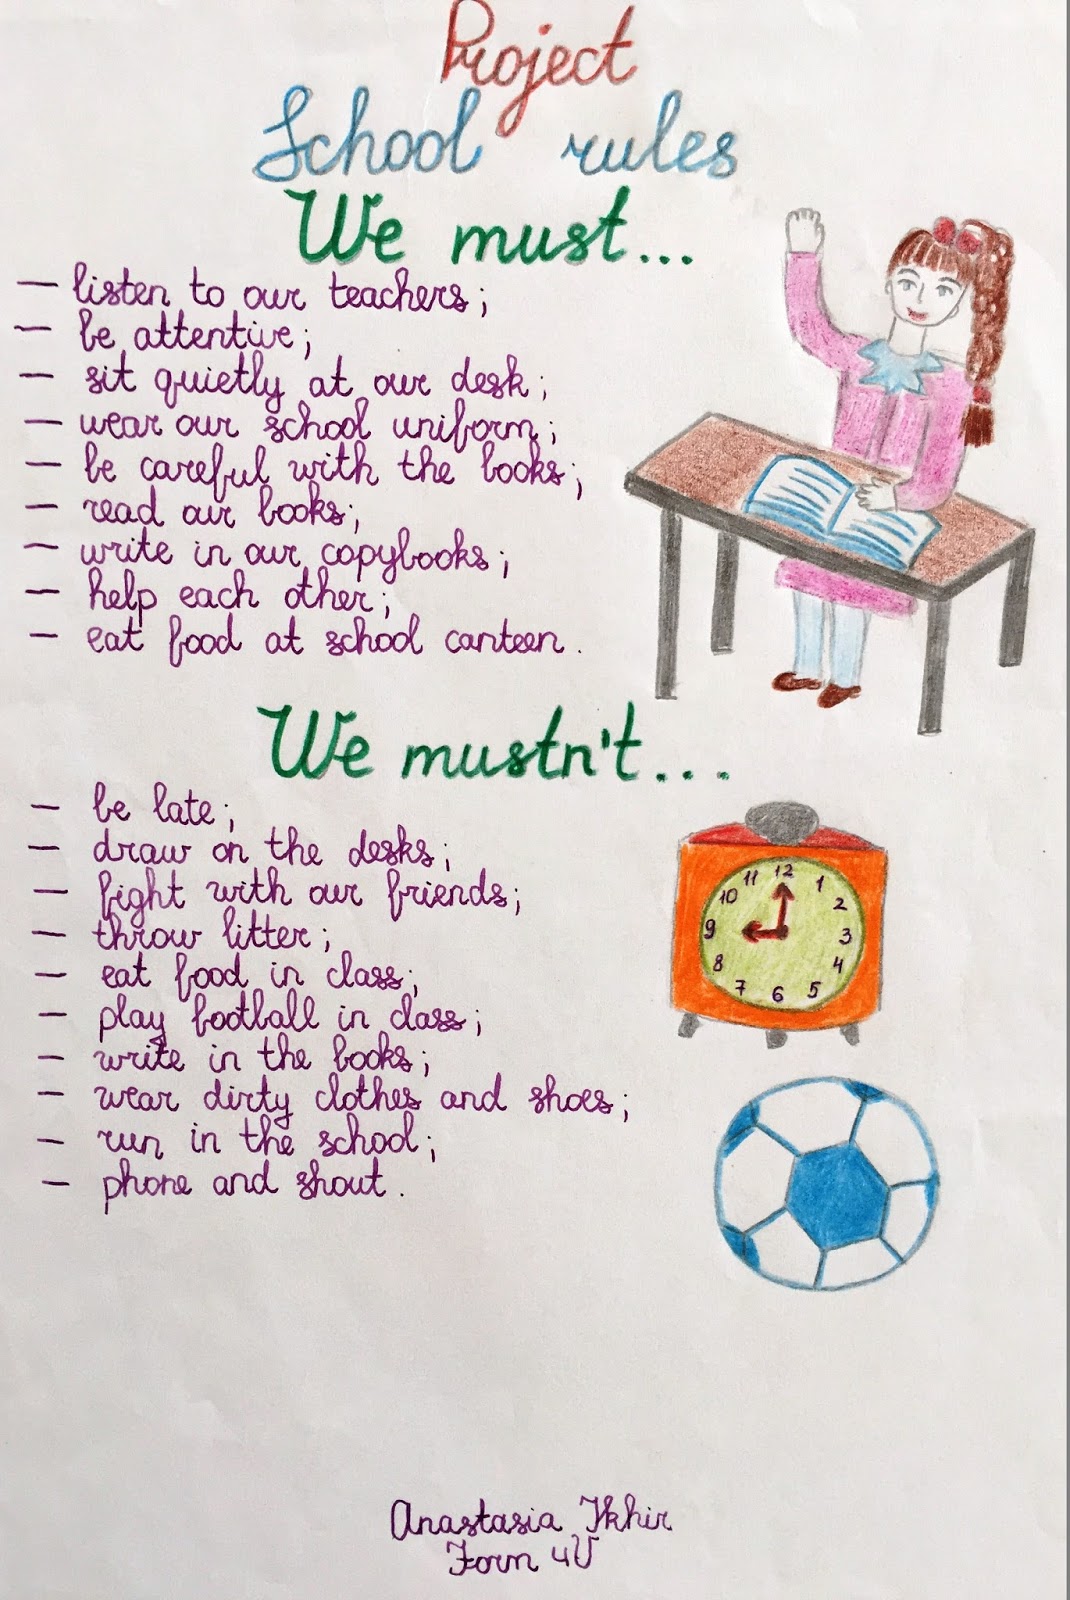 Project
School rules
We must...
— listen to our teachers;
— be attentive;
— sit quietly at our desk;
— wear our school uniform;
— be careful with the books;
— read our books;
— write in our copybooks;
— help each other;
— eat food at school canteen.
We mustn't...
— be late;
— draw on the desks;
— fight with our friends;
— throw litter;
— eat food in class;
— play football in class;
— write in the books;
— wear dirty clothes and shoes;
— run in the school;
— phone and shout.
11 12 1
10 2
9 3
8 4
7 6 5
Anastasia Ikhir
Form 4V